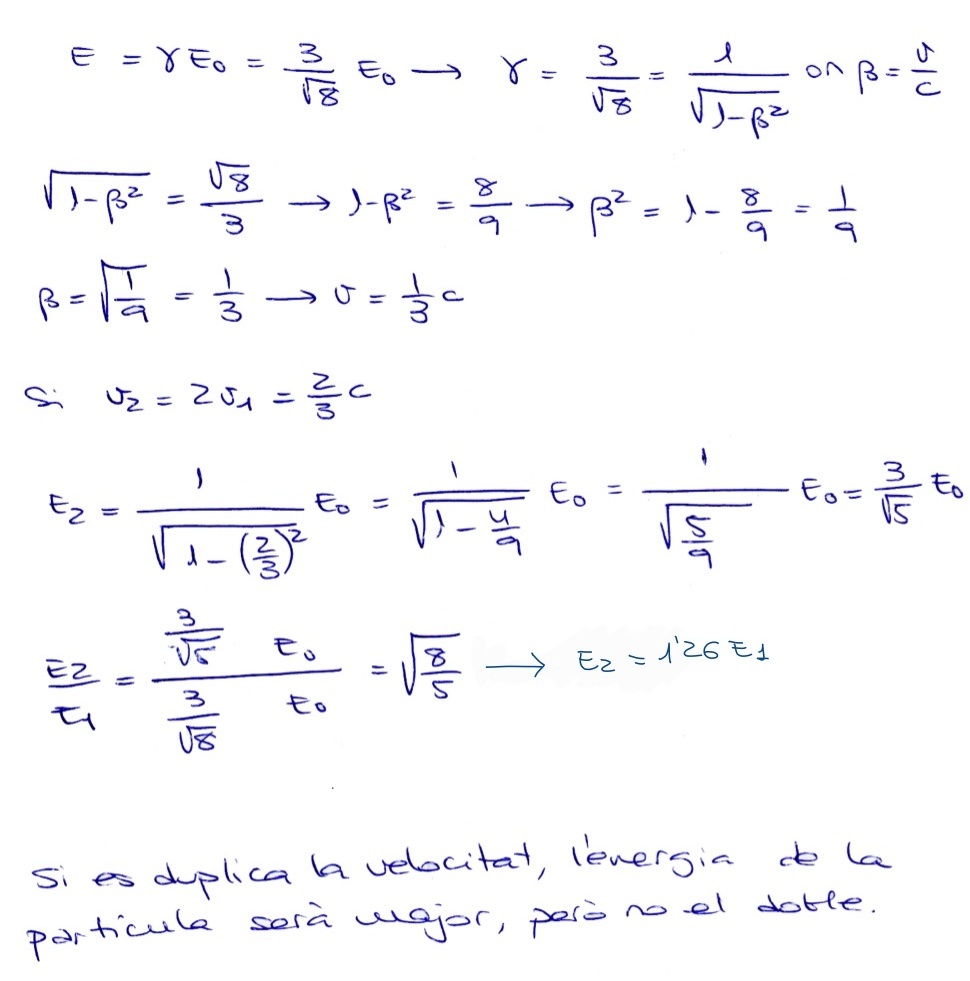 E = γE₀ = 3/√8 E₀ → γ = 3/√8 = 1/√(1-β²) on β = v/c
√(1-β²) = √8/3 → 1-β² = 8/9 → β² = 1 - 8/9 = 1/9
β = √(1/9) = 1/3 → v = 1/3 c
Si v₂ = 2v₁ = 2/3 c
E₂ = 1/√(1-(2/3)²) E₀ = 1/√(1-4/9) E₀ = 1/√(5/9) E₀ = 3/√5 E₀
E2/E1 = (3/√5 E₀)/(3/√8 E₀) = √(8/5) → E₂ = 1'26 E1
Si es duplica la velocitat, l'energia de la
partícula serà major, però no el doble.